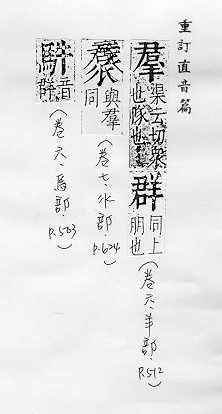 重訂直音篇
羣 渠云切衆也隊也 群 同上朋也
(卷六.羊部.P.512)
與羣同
(卷七.水部.P.624)
音群
(卷六.馬部.P.503)